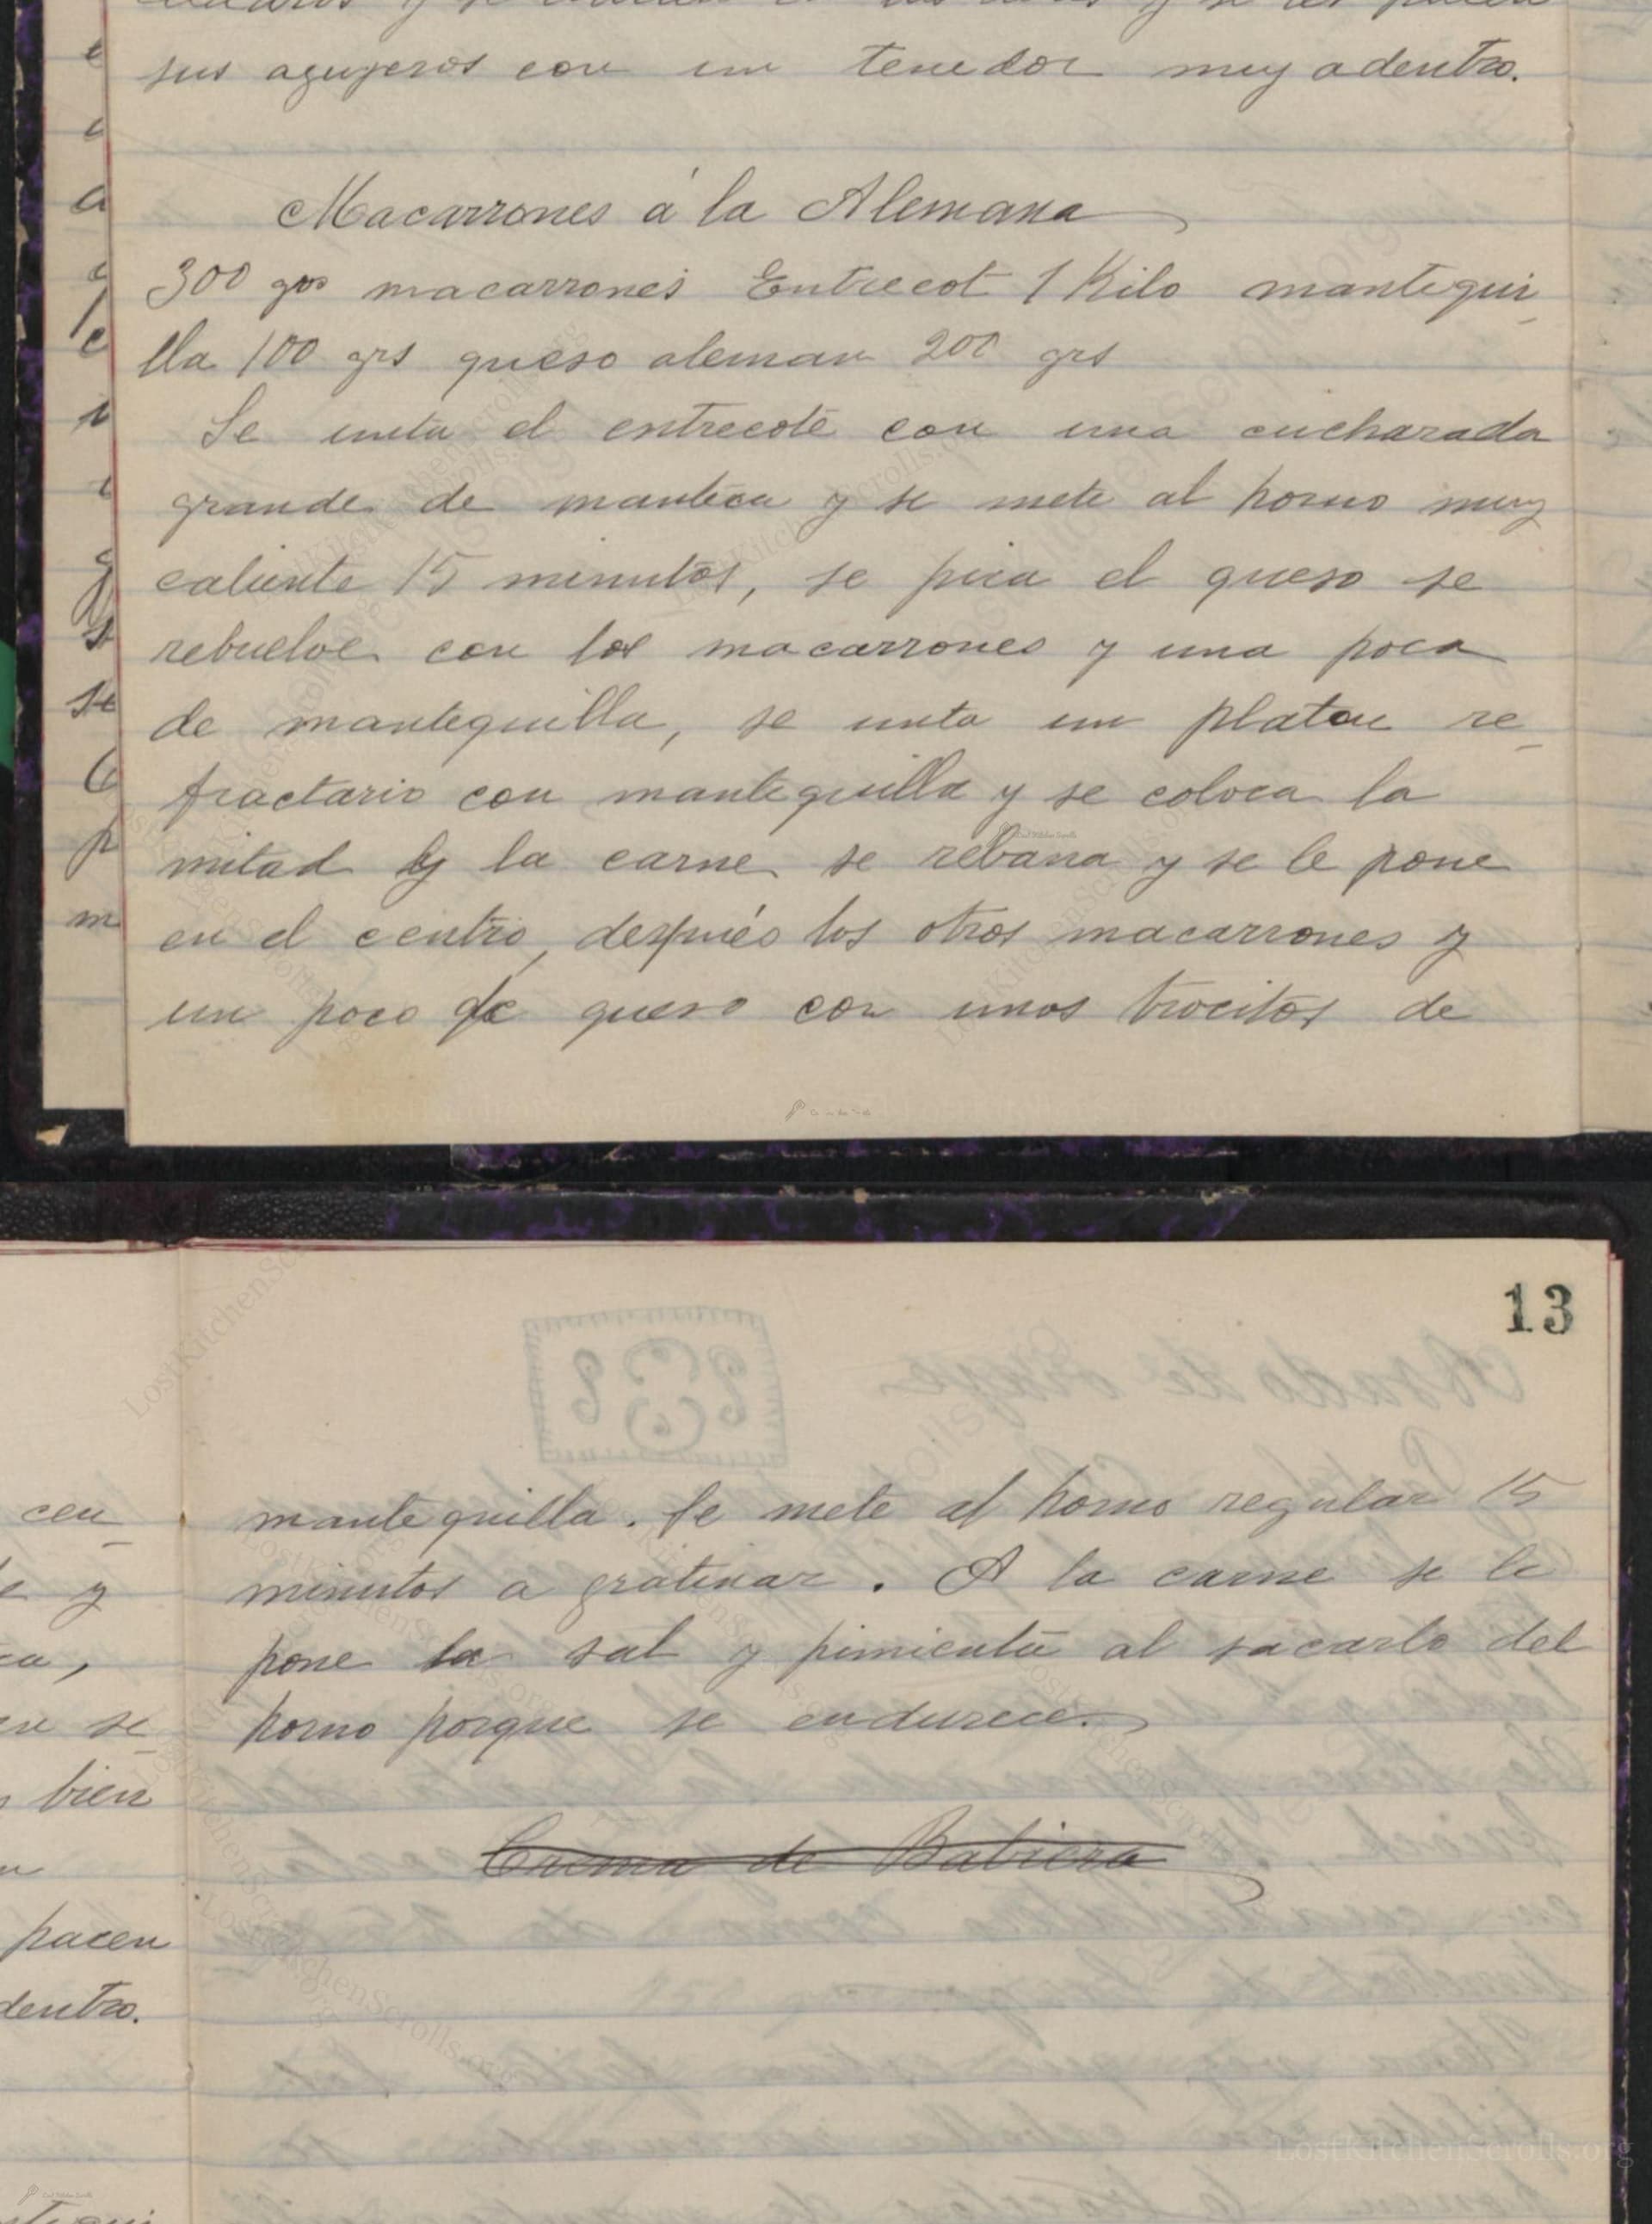 sus agujeros con un tenedor muy adentro.
Macarrones á la Alemana
300 grs macarrones Entrecot 1 Kilo mantequi
lla 100 grs queso aleman 200 grs
Se unta el entrecote con una cucharada
grande de manteca y se mete al horno muy
caliente 15 minutos, se pica el queso se
rebuelve con los macarrones y una poca
de mantequilla, se unta un platon re
fractario con mantequilla y se coloca la
mitad y la carne se rebana y se le pone
en el centro, después los otros macarrones y
un poco de queso con unos trocitos de
13
mantequilla. Se mete al horno regular 15
minutos a gratinar. A la carne se le
pone la sal y pimienta al sacarlo del
horno porque se endurece.
Crema de Babiera
cen
y
se
bien
hacen
dentro.
LostKitchenScrolls.org